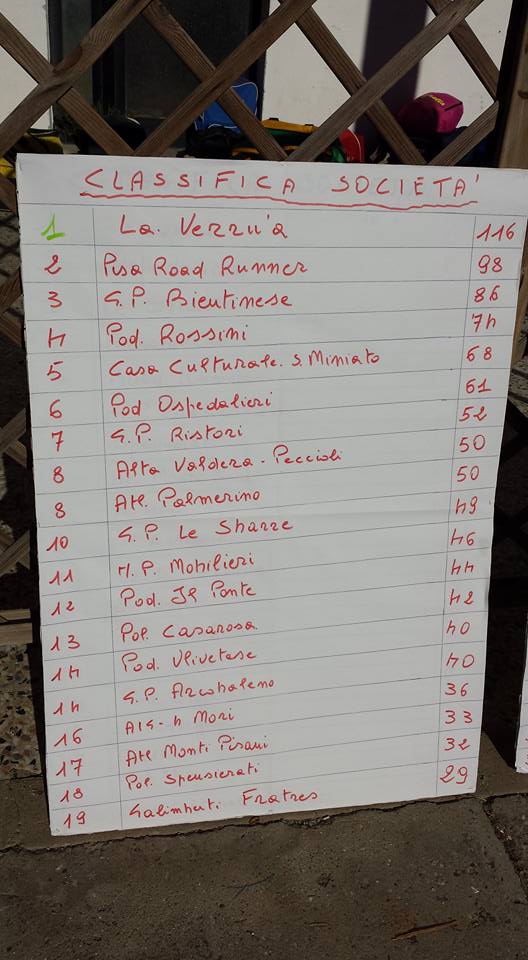 CLASSIFICA SOCIETA'
1 La. Verru'a 116
2 Pisa Road Runner 98
3 G.P. Bientinese 86
4 Pod. Rossini 74
5 Casa Culturale. S. Miniato 68
6 Pod Ospedalieri 61
7 G.P. Ristori 52
8 Alta Valdera - Peccioli 50
8 Atl. Palmerino 50
10 G.P. Le Sbarre 49
11 M.P. Mobilieri 46
12 Pod. Il Ponte 44
13 Pol. Casarosa 42
14 Pod. Ulivetese 40
14 G.P. Arcobaleno 40
16 4 Mori 36
17 Atl Monti Pisani 33
18 Pol. Spensierati 32
19 Galimberti Fratres 29